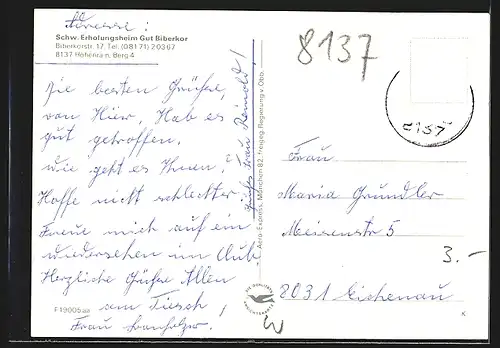 Adresse:
Schw. Erholungsheim Gut Biberkor
Biberkorstr. 17, Tel. (08171) 20367
8137 Höhenrain. Berg 4
Die besten Grüße,
von Hier, Hab es
gut getroffen.
Wie geht es Ihnen?
Hoffe nicht schlechter.
Freue mich auf ein
wiedersehen im Club.
Herzliche Grüße Allen
am Tiesch,
Frau
F19005
Grüßes Frau Reinold!
Aero-Express, München 82, freigeg. Regierung v. Obb.
8137
8137
Frau
Maria Grundler
Meisenstr 5
3.-
8031 Eichenau
K
W